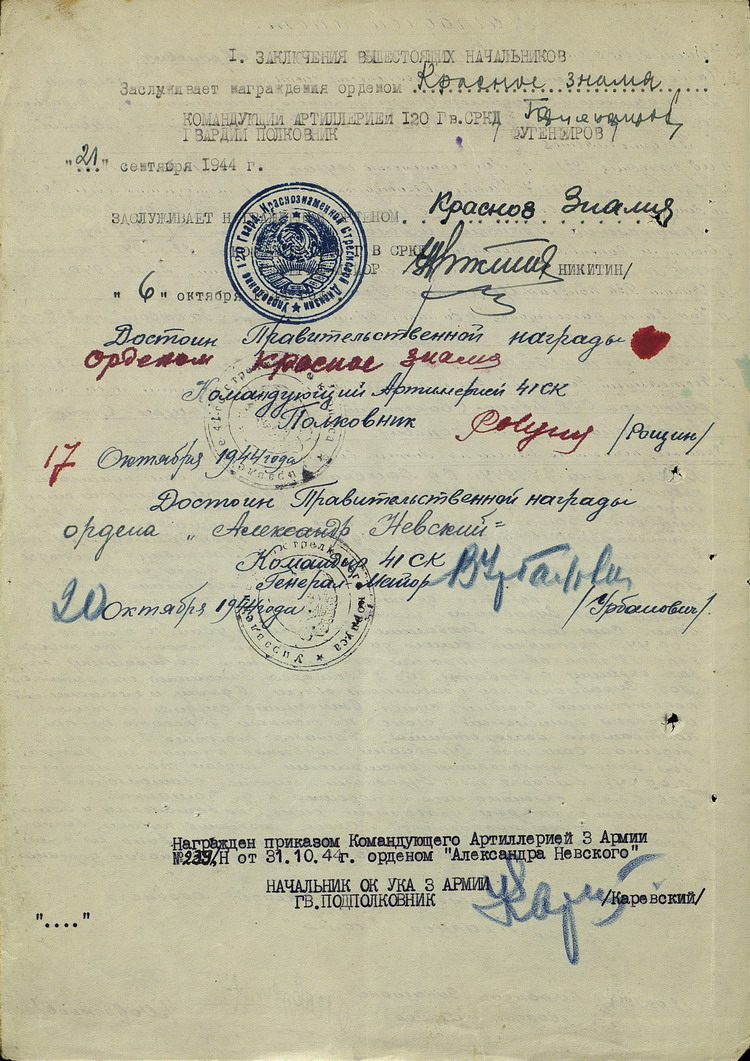 I. ЗАКЛЮЧЕНИЯ ВЫШЕСТОЯЩИХ НАЧАЛЬНИКОВ
Заслуживает награждения орденом Красное знамя
КОМАНДУЮЩИЙ АРТИЛЛЕРИЕЙ 120 Гв.СРКД
ГВАРДИИ ПОЛКОВНИК / ФУГЕНФИРОВ /
"21" сентября 1944 г.
ЗАСЛУЖИВАЕТ ОРДЕНОМ Красное Знамя
В СРКД
НИКИТИН/
"6" октября
Управление 120 Гвард. Краснознаменной Стрелковой Дивизии
Достоин Правительственной награды
орденом красное знамя
Командующий Артиллерией 41 СК
Полковник /Рощин/
17 Октября 1944 года
Достоин Правительственной награды
ордена „Александр Невский"
Командир 41 СК
Генерал Майор
20 Октября 1944 года. /Урбанович/.
Награжден приказом Командующего Артиллерией 3 Армии
№239/Н от 31.10.44г. орденом "Александра Невского"
НАЧАЛЬНИК ОК УКА 3 АРМИИ
ГВ.ПОДПОЛКОВНИК /Каревский/
"...."